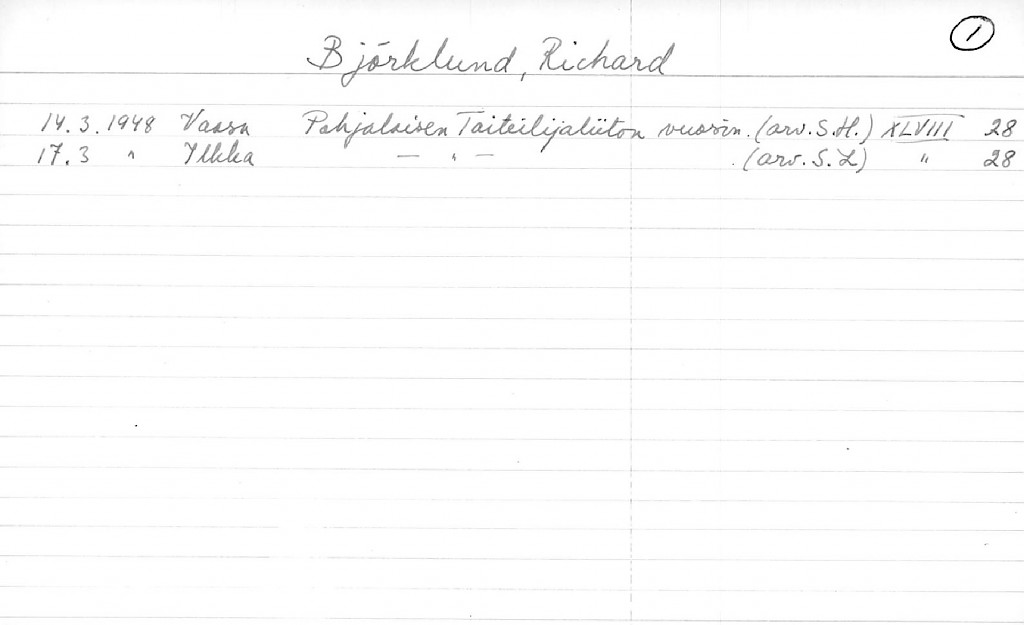 1
Björklund, Richard
14.3.1948 Vaasa Pohjalaisen Taiteilijaliiton vuosin. (arv. S.H.) XLVIII 28
17.3 " Ilkka — " — (arv. S.L) " 28